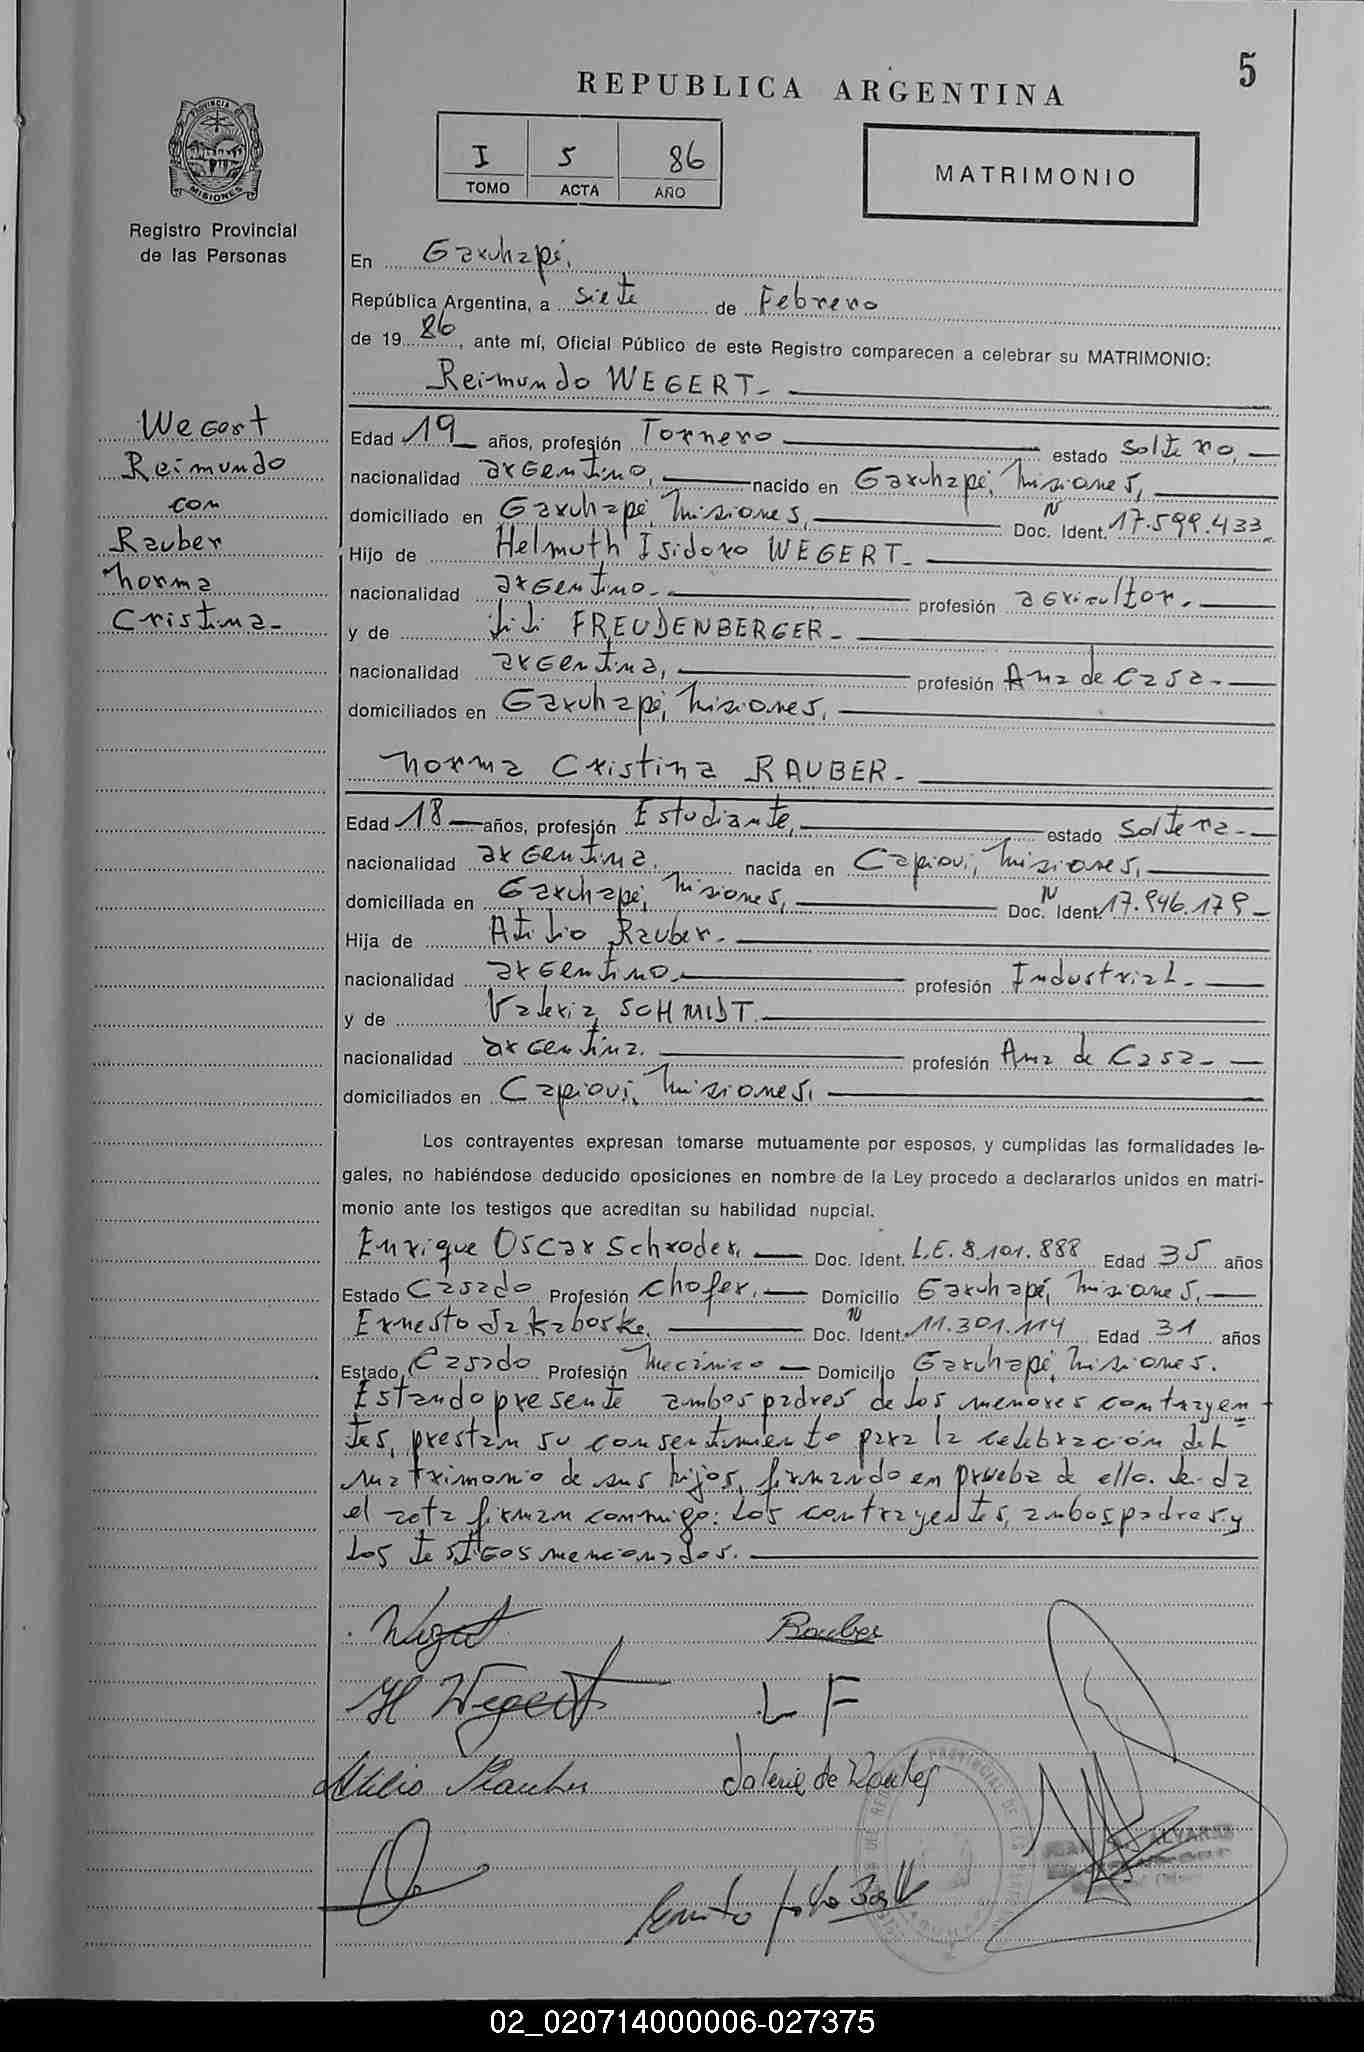 5
REPUBLICA ARGENTINA
I 5 86
TOMO ACTA AÑO
MATRIMONIO
PROVINCIA DE MISIONES
Registro Provincial
de las Personas
Wegert
Reimundo
con
Rauber
Norma
Cristina-
En Garuhapé,
República Argentina, a siete de Febrero
de 19 86, ante mí, Oficial Público de este Registro comparecen a celebrar su MATRIMONIO:
Reimundo WEGERT-
Edad 19 años, profesión Tornero estado soltero,
nacionalidad argentino, nacido en Garuhapé, Misiones,
domiciliado en Garuhapé, Misiones, Doc. Ident. N 17.599.433
Hijo de Helmuth Isidoro WEGERT-
nacionalidad argentino- profesión agricultor-
y de Lili FREUDENBERGER-
nacionalidad argentina, profesión Ama de Casa-
domiciliados en Garuhapé, Misiones,
Norma Cristina RAUBER-
Edad 18 años, profesión Estudiante, estado soltera-
nacionalidad argentina, nacida en Capiovi, Misiones,
domiciliada en Garuhapé, Misiones, Doc. Ident. N 17.946.179-
Hija de Atilio Rauber-
nacionalidad argentino- profesión Industrial-
y de Valeria SCHMIDT-
nacionalidad argentina. profesión Ama de Casa-
domiciliados en Capiovi, Misiones,
Los contrayentes expresan tomarse mutuamente por esposos, y cumplidas las formalidades le-
gales, no habiéndose deducido oposiciones en nombre de la Ley procedo a declararlos unidos en matri-
monio ante los testigos que acreditan su habilidad nupcial.
Enrique Oscar Schroder, Doc. Ident. L.E. 8.101.888 Edad 35 años
Estado Casado Profesión Chofer, Domicilio Garuhapé, Misiones,
Ernesto Jakaboske, Doc. Ident. N 11.301.114 Edad 31 años
Estado Casado Profesión Mecánico Domicilio Garuhapé, Misiones.
Estando presente ambos padres de los menores contrayen
tes, prestan su consentimiento para la celebración del
matrimonio de sus hijos, firmando en prueba de ello. Leída
el acta firman conmigo: los contrayentes, ambos padres y
los testigos mencionados.
Wegert Rauber
H Wegert L F
Atilio Rauber Valeria de Rauber
ALVAREZ
02_020714000006-027375